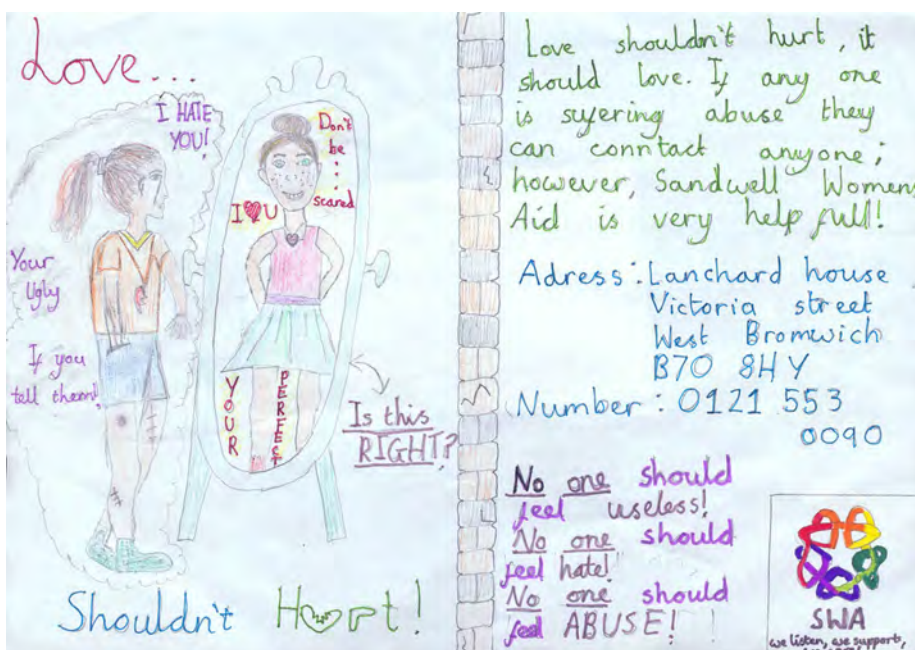 Love...
I HATE
YOU!
Your
Ugly
If you
tell them!
Don't
be
scared
I U
YOUR
PERFECT
Is this
RIGHT?
Shouldn't Hurt!
Love shouldn't hurt, it
should love. If any one
is suffering abuse they
can conntact anyone;
however, Sandwell Womens
Aid is very help full!
Adress: Lanchard house
Victoria street
West Bromwich
B70 8HY
Number: 0121 553
0090
No one should
feel useless!
No one should
feel hate!
No one should
feel ABUSE!
SWA
we listen, we support,